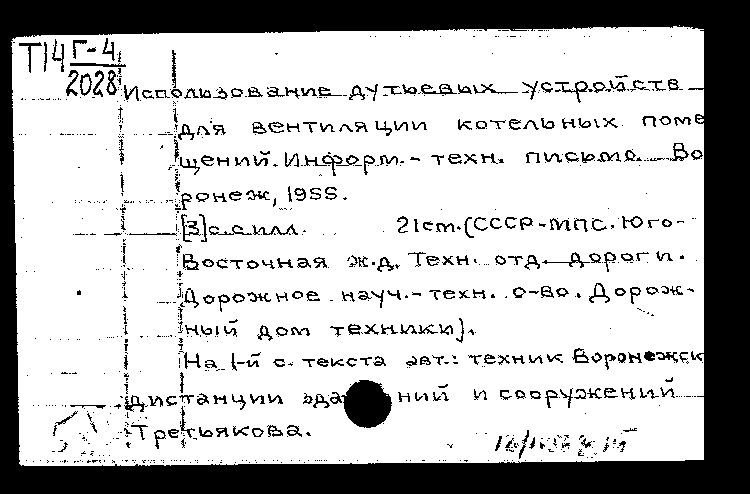 Т14 Г-4
2028
Использование дутьевых устройств
для вентиляции котельных поме
щений. Информ.- техн. письмо. Во
ронеж, 1955.
[3]с.с илл. 21см.(СССР-МПС. Юго-
Восточная ж.д. Техн. отд. дороги.
Дорожное науч.-техн. о-во. Дорож-
ный дом техники).
На 1-й с. текста авт.: техник Воронежск
дистанции зда ний и сооружений
Третьякова.